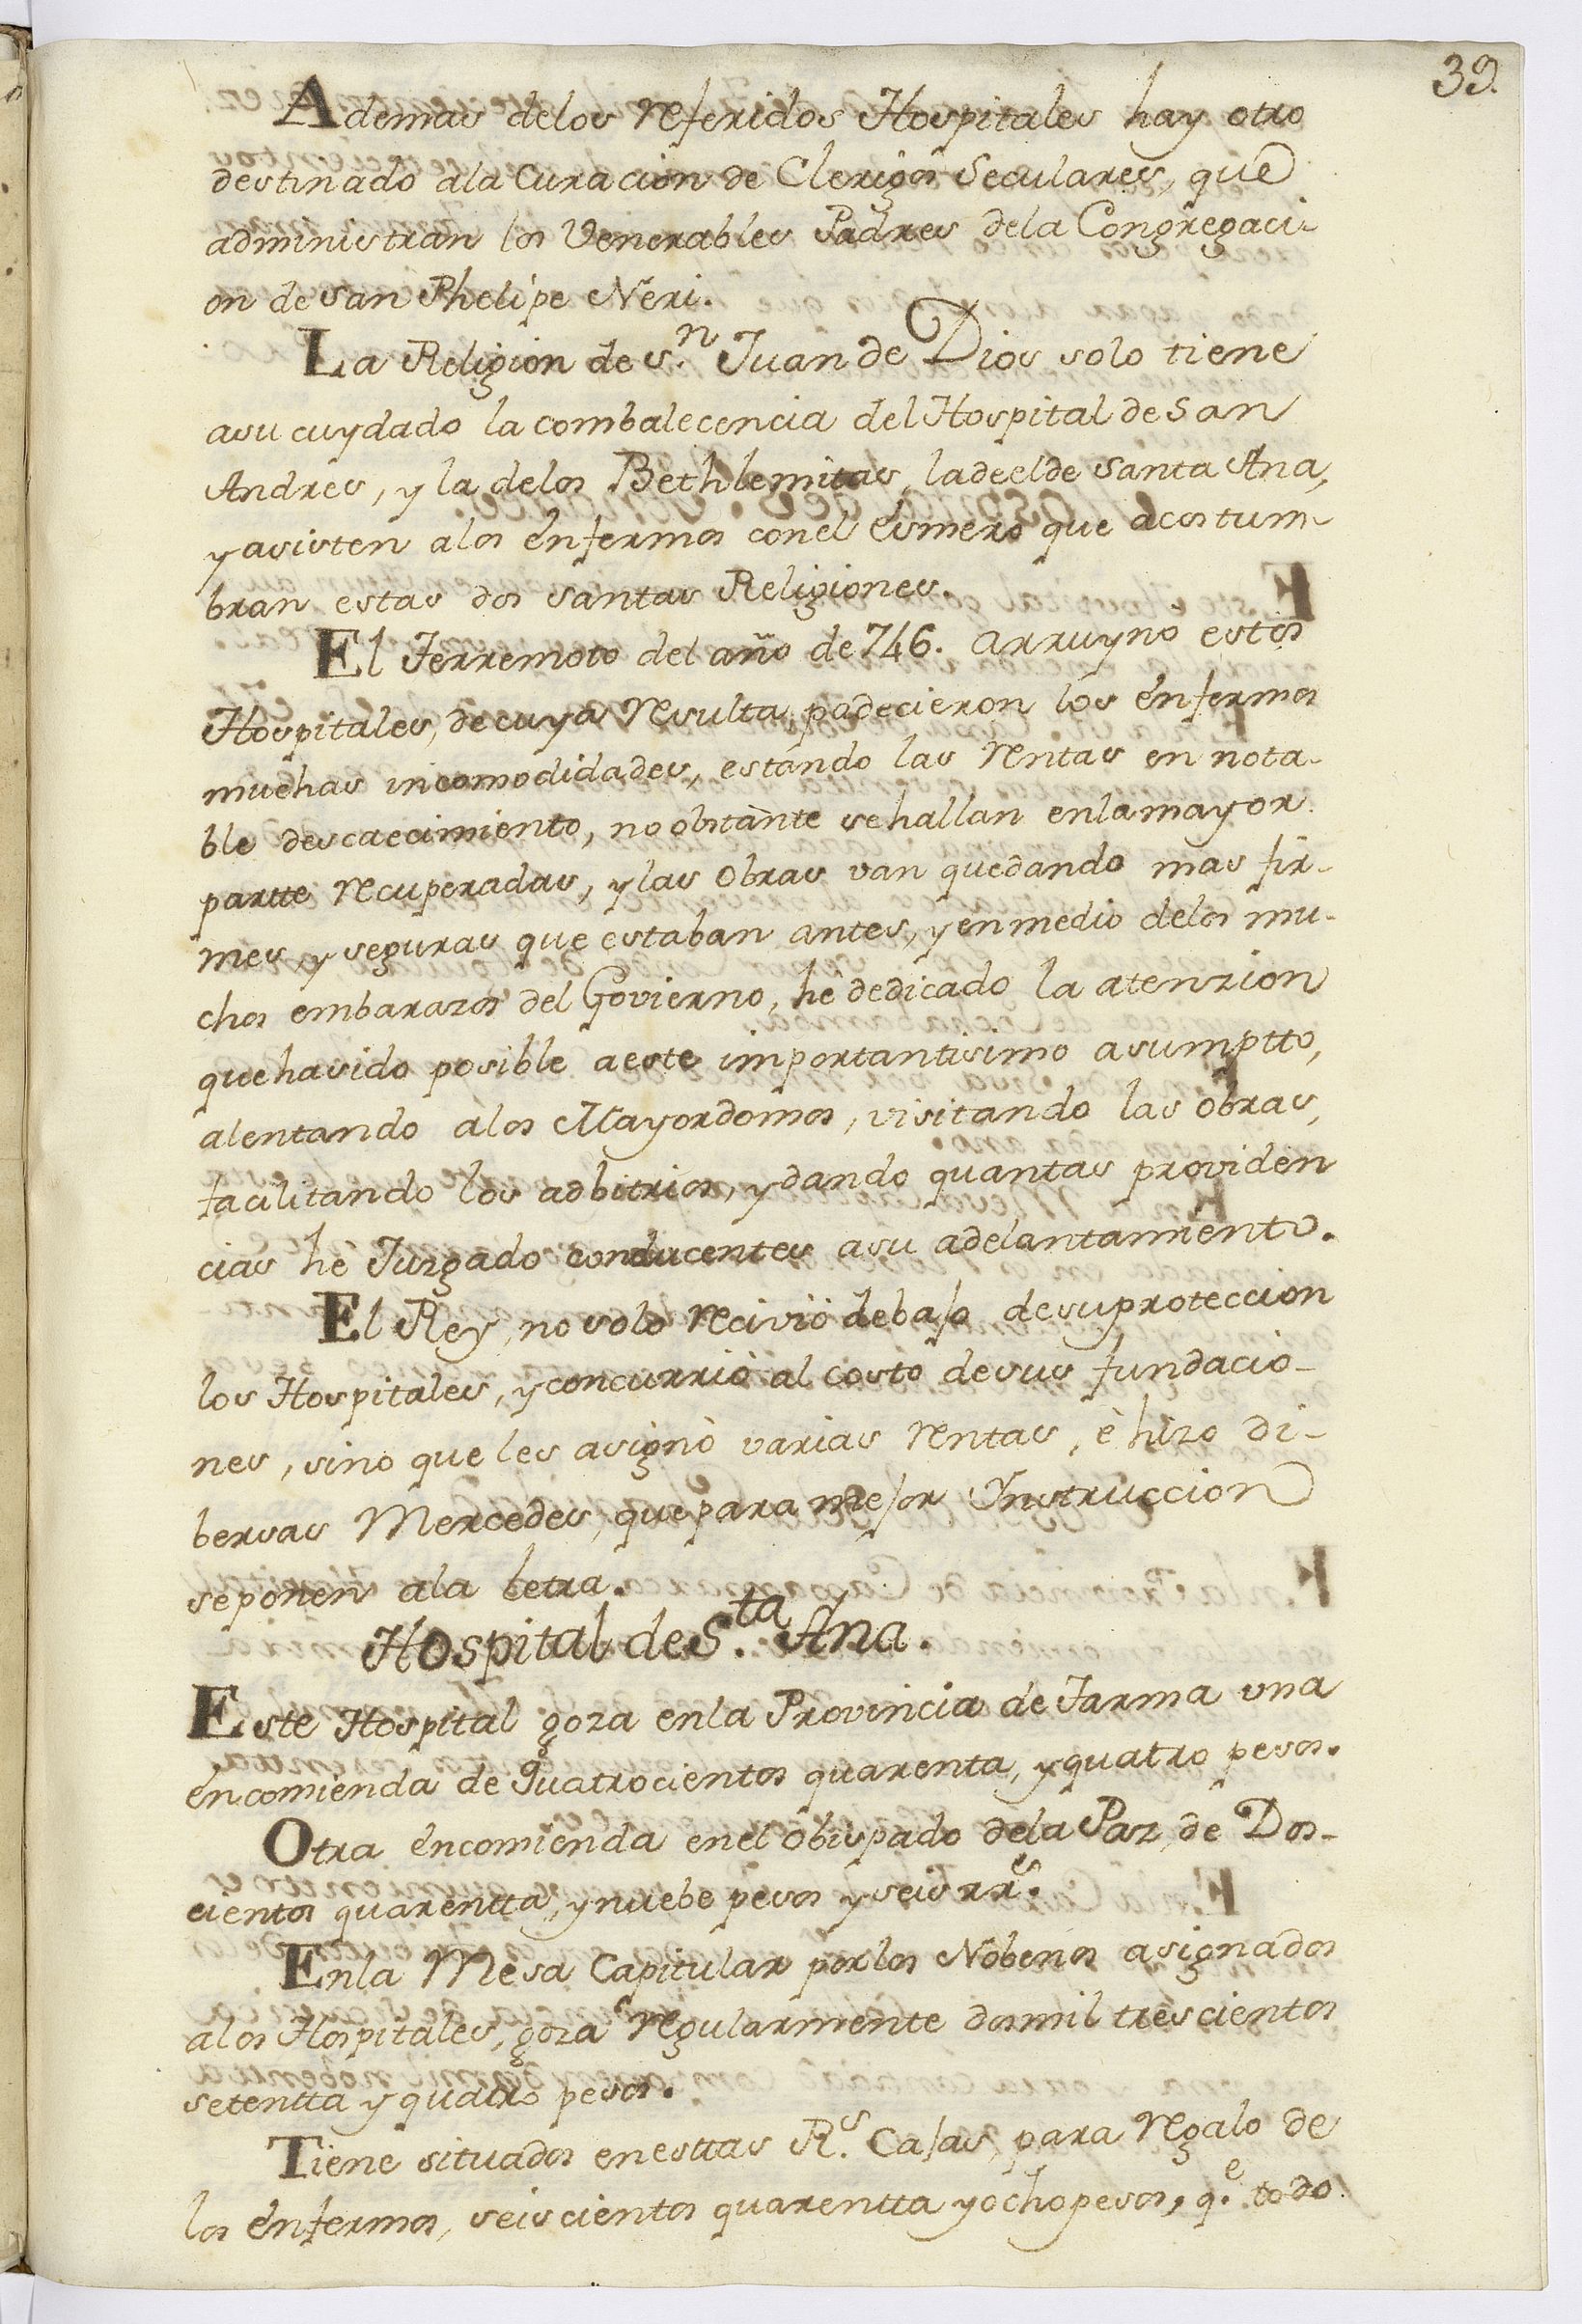 39.
Ademas delos referidos Hospitales hay otro
destinado ala Curacion de Clerigos Seculares, que
administran los Venerables Padres dela Congregaci-
on de San Phelipe Neri.
La Religion de S.n Juan de Dios solo tiene
asu cuydado la combalecencia del Hospital de San
Andres, y la delos Bethlemitas, ladeelde Santa Ana,
y asisten alos enfermos conel esmero que acostum-
bran estas dos Santas Religiones.
El Terremoto del año de 746. arruynò estos
Hospitales, de cuya resulta padecieron los enfermos
muchas incomodidades, estando las rentas en nota-
ble descaecimiento, no obstante sehallan enlamayor
partte recuperadas, y las obras van quedando mas fir-
mes, y seguras que estaban antes, y enmedio delos mu-
chos embarazos del Govierno, hè dedicado la atenzion
quehasido posible aeste importantisimo asumptto,
alentando alos Mayordomos, visitando las obras,
facilitando los adbitrios, y dando quantas providen
cias hè Juzgado conducentes asu adelantamiento.
El Rey, no solo recivió debajo desuproteccion
los Hospitales, y concurrió al costo desus fundacio-
nes, sino que les asignò varias rentas, è hizo di-
bersas Mercedes, quepara mejor Ynstruccion
seponen ala letra.
Hospital de S.ta Ana.
Este Hospital goza enla Provincia de Tarma una
encomienda de Quatrocientos quarenta, y quatro pesos.
Otra encomienda enel obispado dela Paz, de Dos-
cientos quarentta, y nuebe pesos y seis rr.s
Enla Mesa Capitular por los Nobenos asignados
alos Hospitales, goza regularmente dosmil trescientos
setentta y quatro pesos.
Tiene situados enesttas R.s Cajas, para regalo de
los enfermos, seiscientos quarentta yochopesos, q.e todo